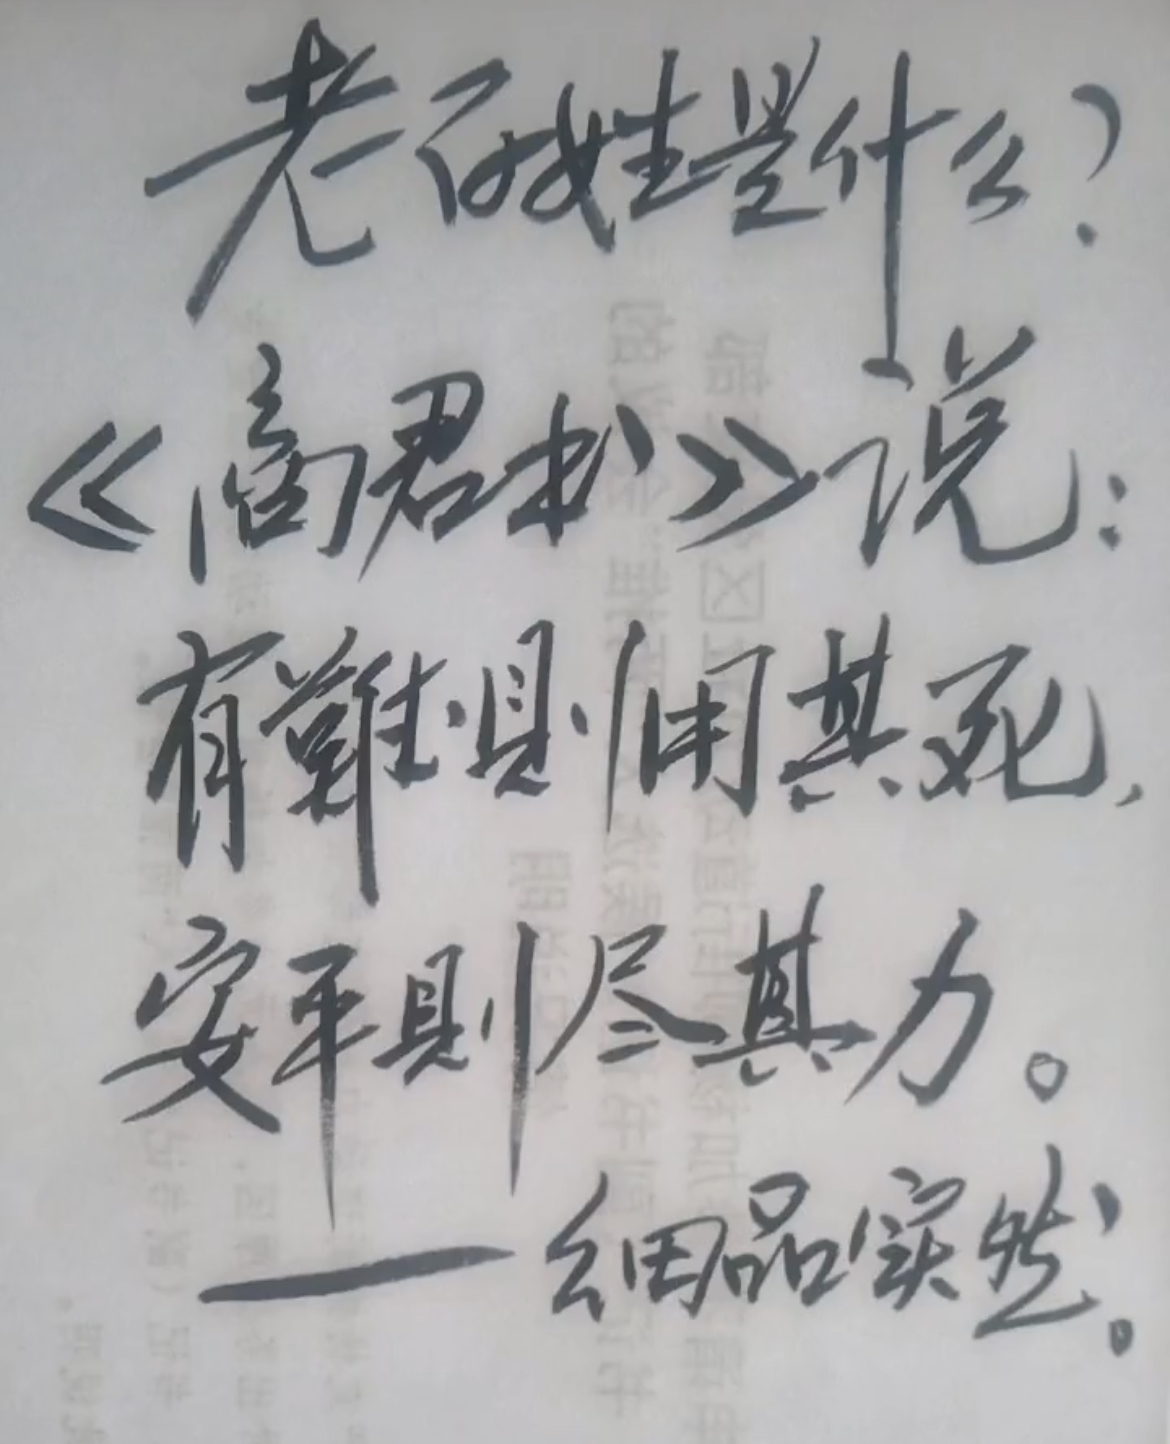 老百姓是什么?
《商君书》说:
有難则用其死,
安平则尽其力。
——细品实然。